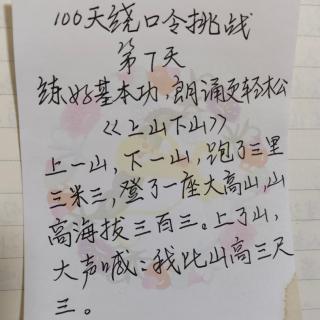 100天绕口令挑战
第7天
练好基本功,朗诵更轻松
《上山下山》
上一山,下一山,跑了三里
三米三,登了一座大高山,山
高海拔三百三。上了山,
大声喊:我比山高三尺
三。